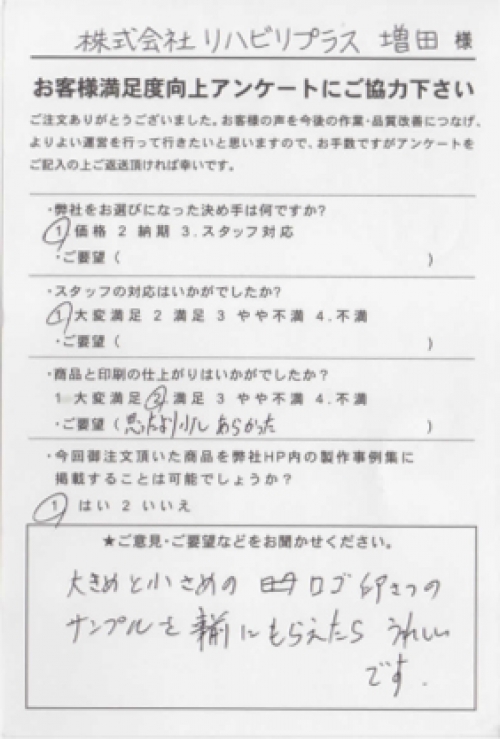 株式会社リハビリプラス 増田 様
お客様満足度向上アンケートにご協力下さい
ご注文ありがとうございました。お客様の声を今後の作業・品質改善につなげ、
よりよい運営を行って行きたいと思いますので、お手数ですがアンケートを
ご記入の上ご返送頂ければ幸いです。
・弊社をお選びになった決め手は何ですか?
1 価格 2 納期 3.スタッフ対応
・ご要望 ( )
・スタッフの対応はいかがでしたか?
1 大変満足 2 満足 3 やや不満 4.不満
・ご要望 ( )
・商品と印刷の仕上がりはいかがでしたか?
1 大変満足 2 満足 3 やや不満 4.不満
・ご要望 ( 思たより少し あらかった )
・今回御注文頂いた商品を弊社HP内の製作事例集に
掲載することは可能でしょうか?
1 はい 2 いいえ
★ご意見・ご要望などをお聞かせください。
大きめと小さめの ロゴ 印さつの
サンプルを 事前にもらえたら うれしい
です.